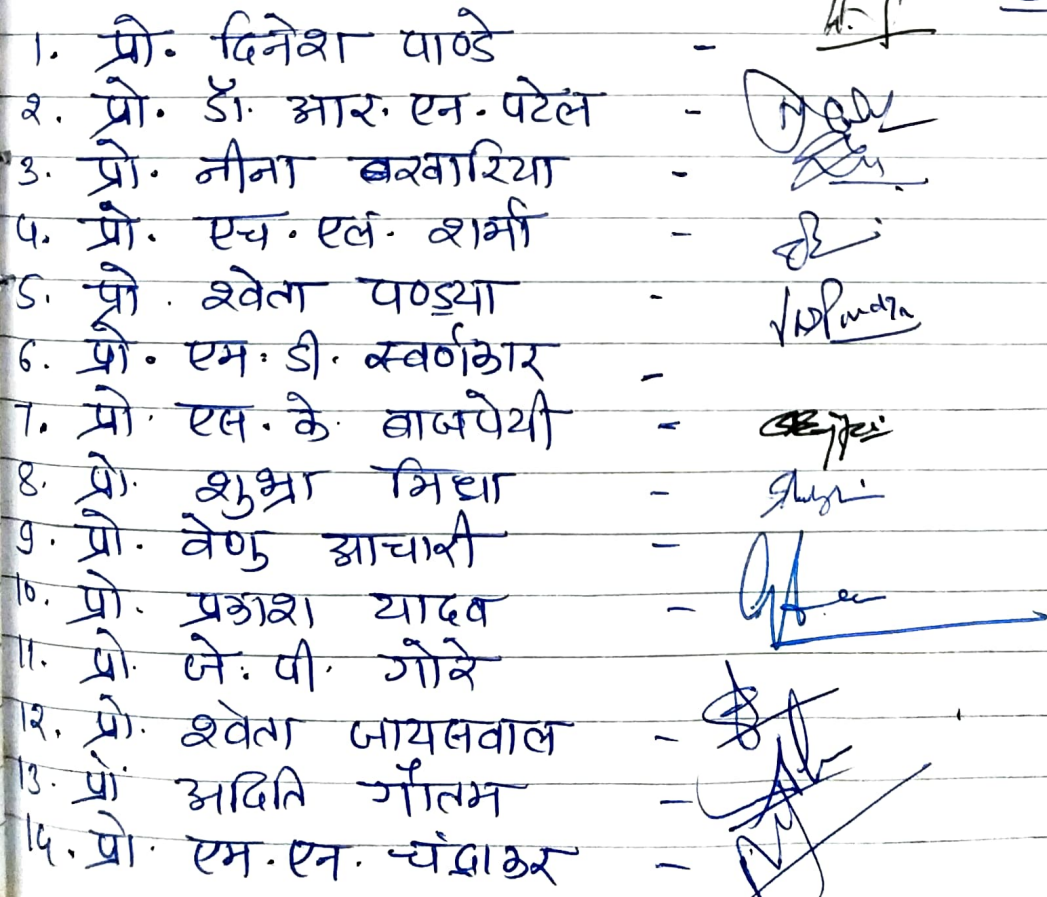 1. प्रो. दिनेश पाण्डे -
२. प्रो. डॉ. आर. एन. पटेल -
3. प्रो. नीना बखारिया -
4. प्रो. एच. एल. शर्मा -
5. प्रो. श्वेता पण्ड्या -
6. प्रो. एम. डी. स्वर्णकार -
7. प्रो. एस. के. बाजपेयी -
8. प्रो. शुभ्रा मिश्रा -
9. प्रो. वेणु आचारी -
10. प्रो. प्रकाश यादव -
11. प्रो. जे. पी. गोरे
1२. प्रो. श्वेता जायसवाल -
13. प्रो. अदिति गौतम -
14. प्रो. एम. एन. चंद्राकर -